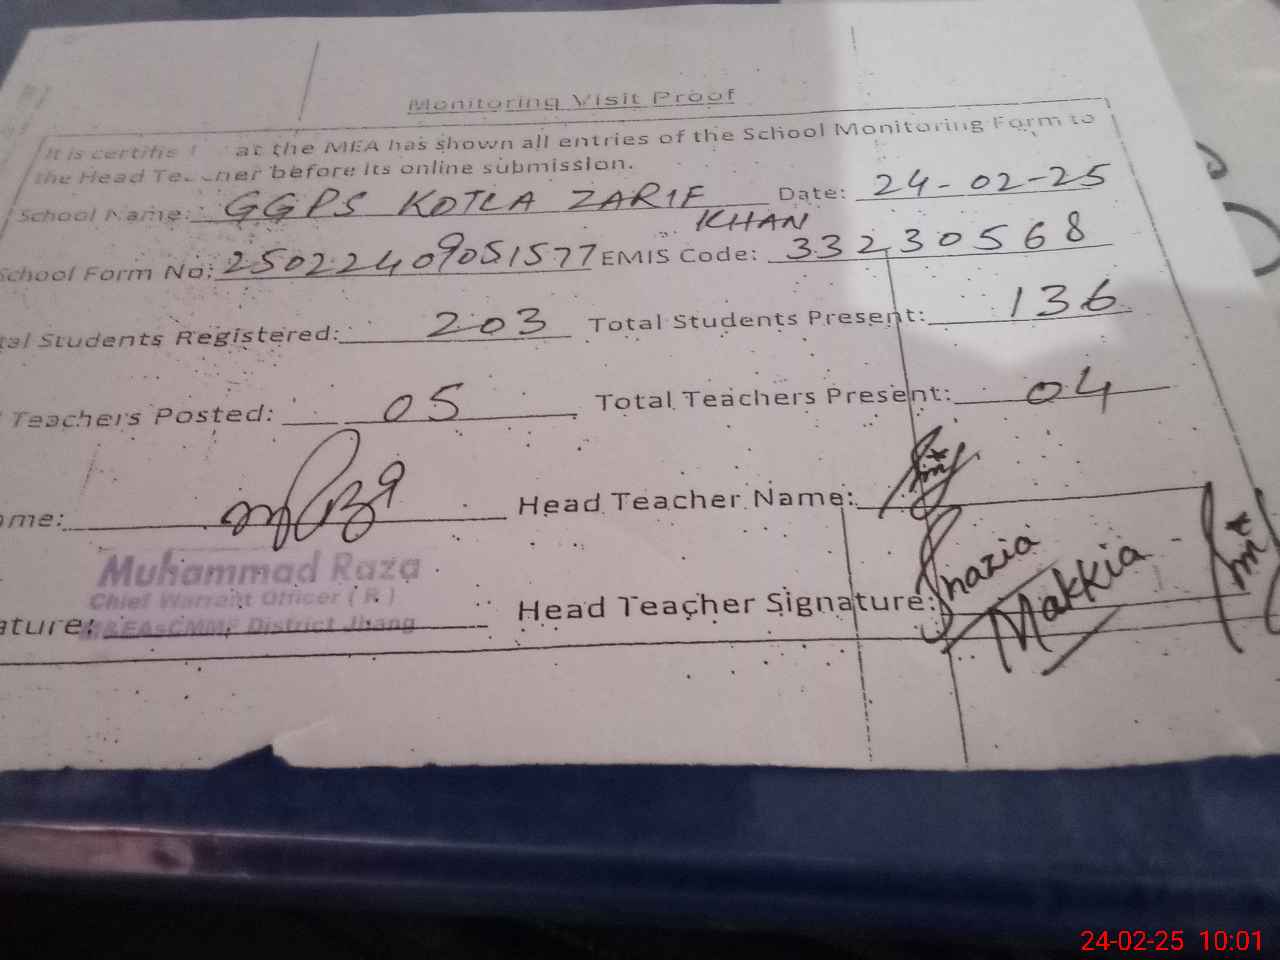 Monitoring Visit Proof
It is certifie at the MEA has shown all entries of the School Monitoring Form to
the Head Te cher before its online submission.
School Name: GGPS KOTLA ZARIF KHAN Date: 24-02-25
School Form No: 2502240905 1577 EMIS Code: 33230568
tal Students Registered: 203 Total Students Present: 136
Teachers Posted: 05 Total Teachers Present: 04
ome: Head Teacher Name:
Muhammad Raza
Chief Warrant Officer (R)
District Jhang
ature: Head Teacher Signature: Shazia Makkia
24-02-25 10:01